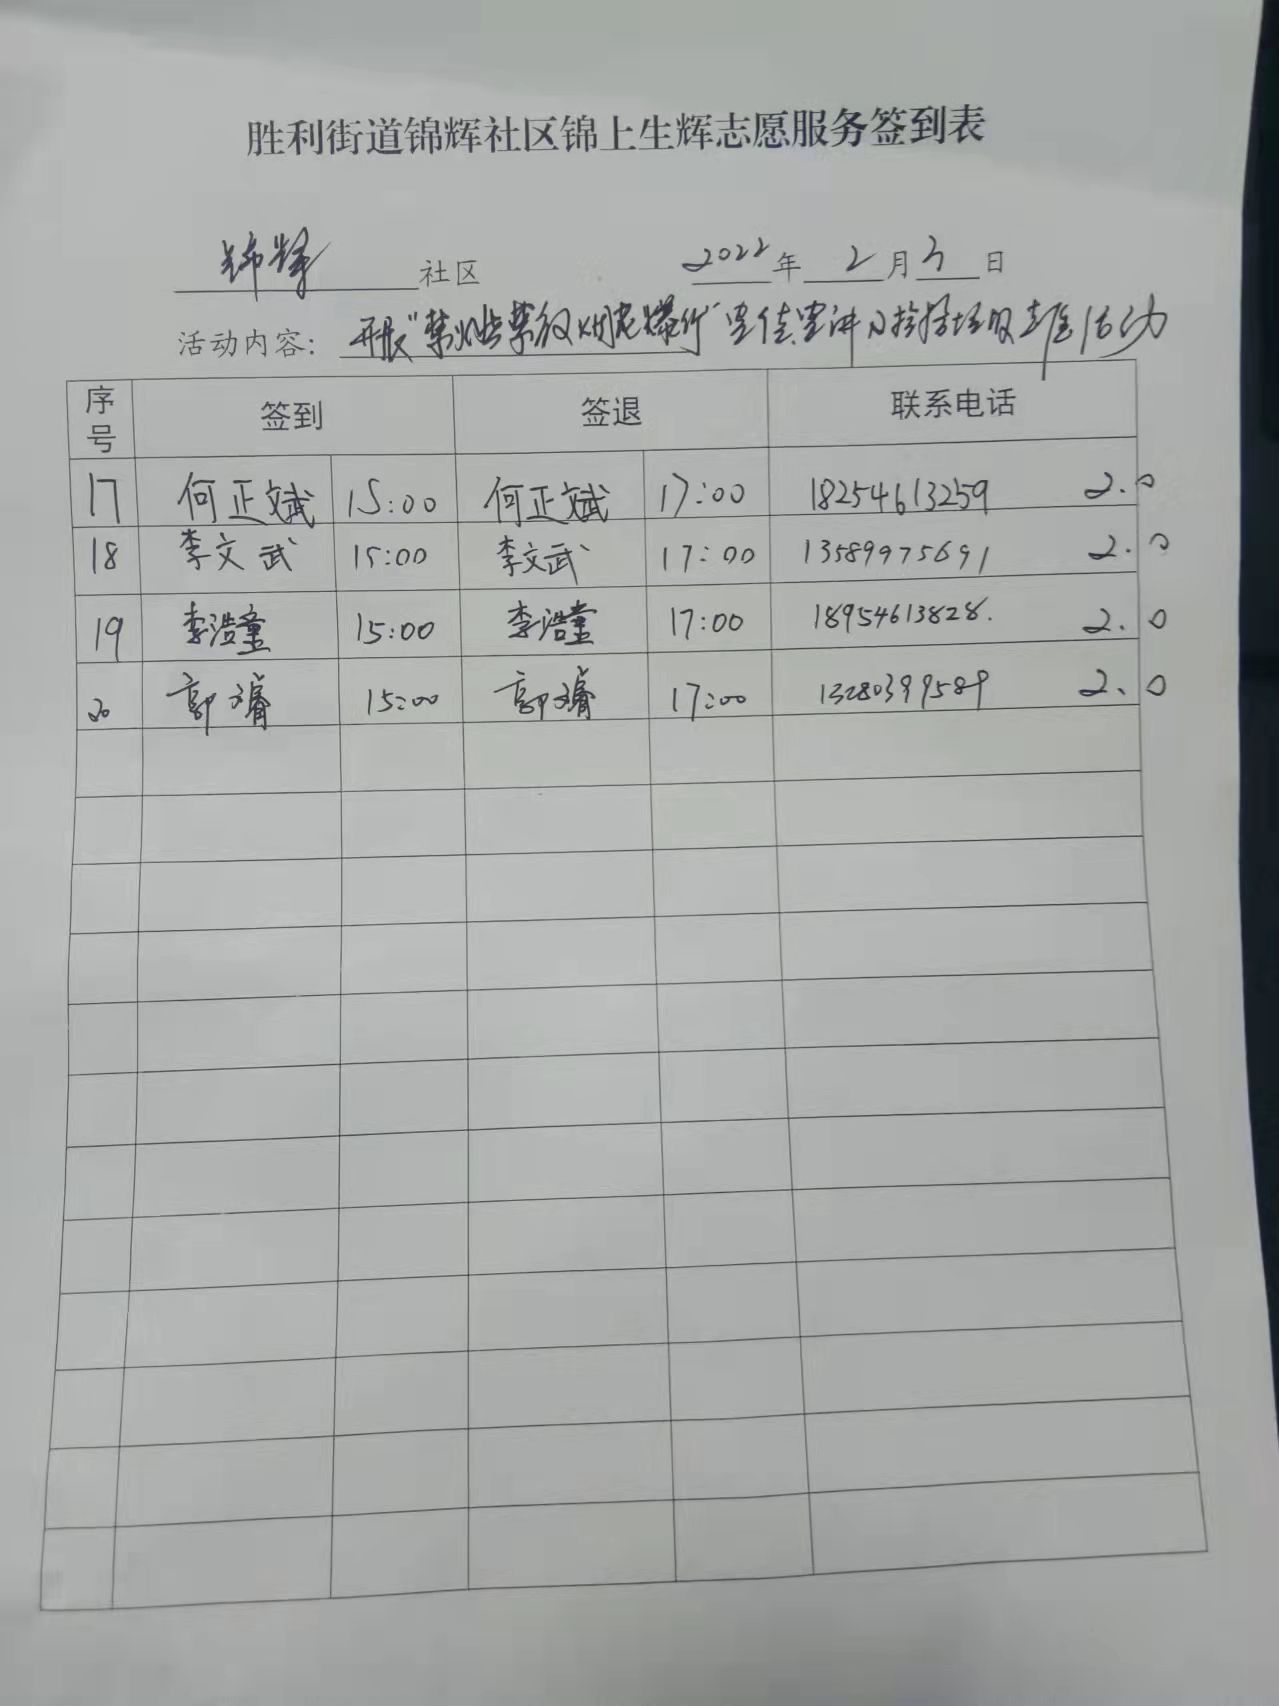 胜利街道锦辉社区锦上生辉志愿服务签到表
锦辉 社区 2022 年 2 月 3 日
活动内容: 开展"禁燃禁放烟花爆竹"宣传 活动
序号 签到 签退 联系电话
17 何正斌 15:00 何正斌 17:00 18254613259 2.0
18 李文武 15:00 李文武 17:00 13589975691 2.0
19 李浩童 15:00 李浩童 17:00 18954613828. 2.0
20 郭睿 15:00 郭睿 17:00 13280399589 2.0